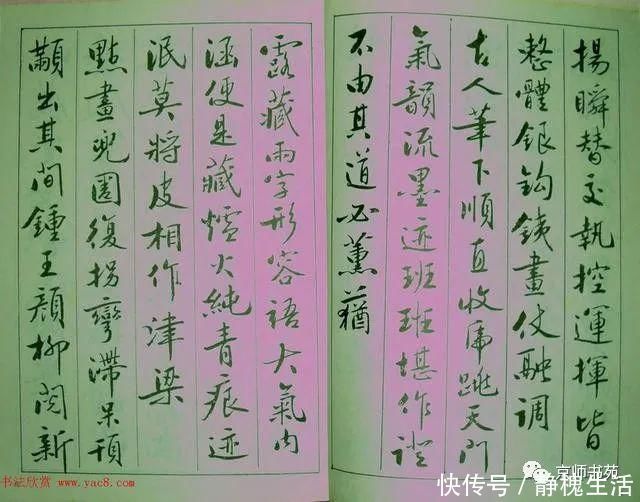 揚瞬替交執控運揮皆
整體銀鈎銕畫仗融調
古人筆下順直收虎跳天門
氣韻流墨迹班班堪作證
不由其道必薰蕕
露藏兩字形容語大氣内
涵便是藏爐火純青痕迹
泯莫將皮相作津梁
點畫兜圈復拐彎滯呆頇
顢出其间鍾王顔柳闵新
书法欣赏 www.yac8.com
京师书苑
快传号/静槐生活